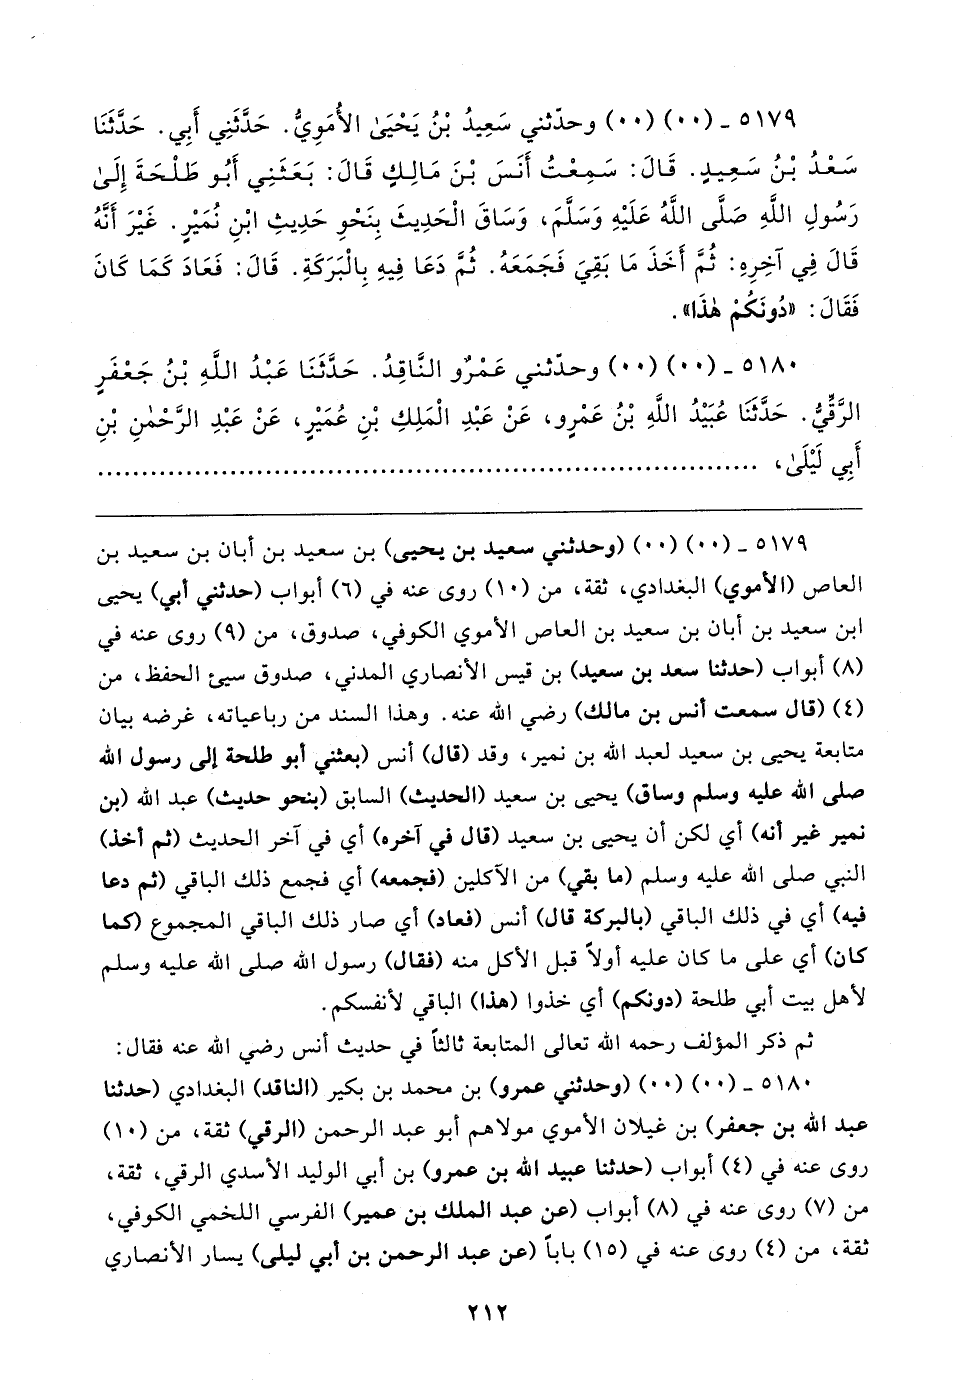 ٥١٧٩ - (٠٠) (٠٠) وحدّثني سَعِيدُ بْنُ يَحْيَىٰ الأُمَوِيُّ. حَدَّثَنِي أَبِي. حَدَّثَنَا
سَعْدُ بْنُ سَعِيدٍ. قَالَ: سَمِعْتُ أَنَسَ بْنَ مَالِكٍ قَالَ: بَعَثَنِي أَبُو طَلْحَةَ إِلَىٰ
رَسُولِ اللَّهِ صَلَّى اللَّهُ عَلَيْهِ وَسَلَّمَ، وَسَاقَ الْحَدِيثَ بِنَحْوِ حَدِيثِ ابْنِ نُمَيْرٍ. غَيْرَ أَنَّهُ
قَالَ فِي آخِرِهِ: ثُمَّ أَخَذَ مَا بَقِيَ فَجَمَعَهُ. ثُمَّ دَعَا فِيهِ بِالْبَرَكَةِ. قَالَ: فَعَادَ كَمَا كَانَ
فَقَالَ: «دُونَكُمْ هٰذَا».
٥١٨٠ - (٠٠) (٠٠) وحدّثني عَمْرٌو النَّاقِدُ. حَدَّثَنَا عَبْدُ اللَّهِ بْنُ جَعْفَرٍ
الرَّقِّيُّ. حَدَّثَنَا عُبَيْدُ اللَّهِ بْنُ عَمْرٍو، عَنْ عَبْدِ الْمَلِكِ بْنِ عُمَيْرٍ، عَنْ عَبْدِ الرَّحْمٰنِ بْنِ
أَبِي لَيْلَىٰ، ....................................................................
٥١٧٩ - (٠٠) (٠٠) (وحدثني سعيد بن يحيى) بن سعيد بن أبان بن سعيد بن
العاص (الأموي) البغدادي، ثقة، من (١٠) روى عنه في (٦) أبواب (حدثني أبي) يحيى
ابن سعيد بن أبان بن سعيد بن العاص الأموي الكوفي، صدوق، من (٩) روى عنه في
(٨) أبواب (حدثنا سعد بن سعيد) بن قيس الأنصاري المدني، صدوق سيئ الحفظ، من
(٤) (قال سمعت أنس بن مالك) رضي الله عنه. وهذا السند من رباعياته، غرضه بيان
متابعة يحيى بن سعيد لعبد الله بن نمير، وقد (قال) أنس (بعثني أبو طلحة إلى رسول الله
صلى الله عليه وسلم وساق) يحيى بن سعيد (الحديث) السابق (بنحو حديث) عبد الله (بن
نمير غير أنه) أي لكن أن يحيى بن سعيد (قال في آخره) أي في آخر الحديث (ثم أخذ)
النبي صلى الله عليه وسلم (ما بقي) من الآكلين (فجمعه) أي فجمع ذلك الباقي (ثم دعا
فيه) أي في ذلك الباقي (بالبركة قال) أنس (فعاد) أي صار ذلك الباقي المجموع (كما
كان) أي على ما كان عليه أولاً قبل الأكل منه (فقال) رسول الله صلى الله عليه وسلم
لأهل بيت أبي طلحة (دونكم) أي خذوا (هذا) الباقي لأنفسكم.
ثم ذكر المؤلف رحمه الله تعالى المتابعة ثالثاً في حديث أنس رضي الله عنه فقال:
٥١٨٠ - (٠٠) (٠٠) (وحدثني عمرو) بن محمد بن بكير (الناقد) البغدادي (حدثنا
عبد الله بن جعفر) بن غيلان الأموي مولاهم أبو عبد الرحمن (الرقي) ثقة، من (١٠)
روى عنه في (٤) أبواب (حدثنا عبيد الله بن عمرو) بن أبي الوليد الأسدي الرقي، ثقة،
من (٧) روى عنه في (٨) أبواب (عن عبد الملك بن عمير) الفرسي اللخمي الكوفي،
ثقة، من (٤) روى عنه في (١٥) باباً (عن عبد الرحمن بن أبي ليلى) يسار الأنصاري
٢١٢